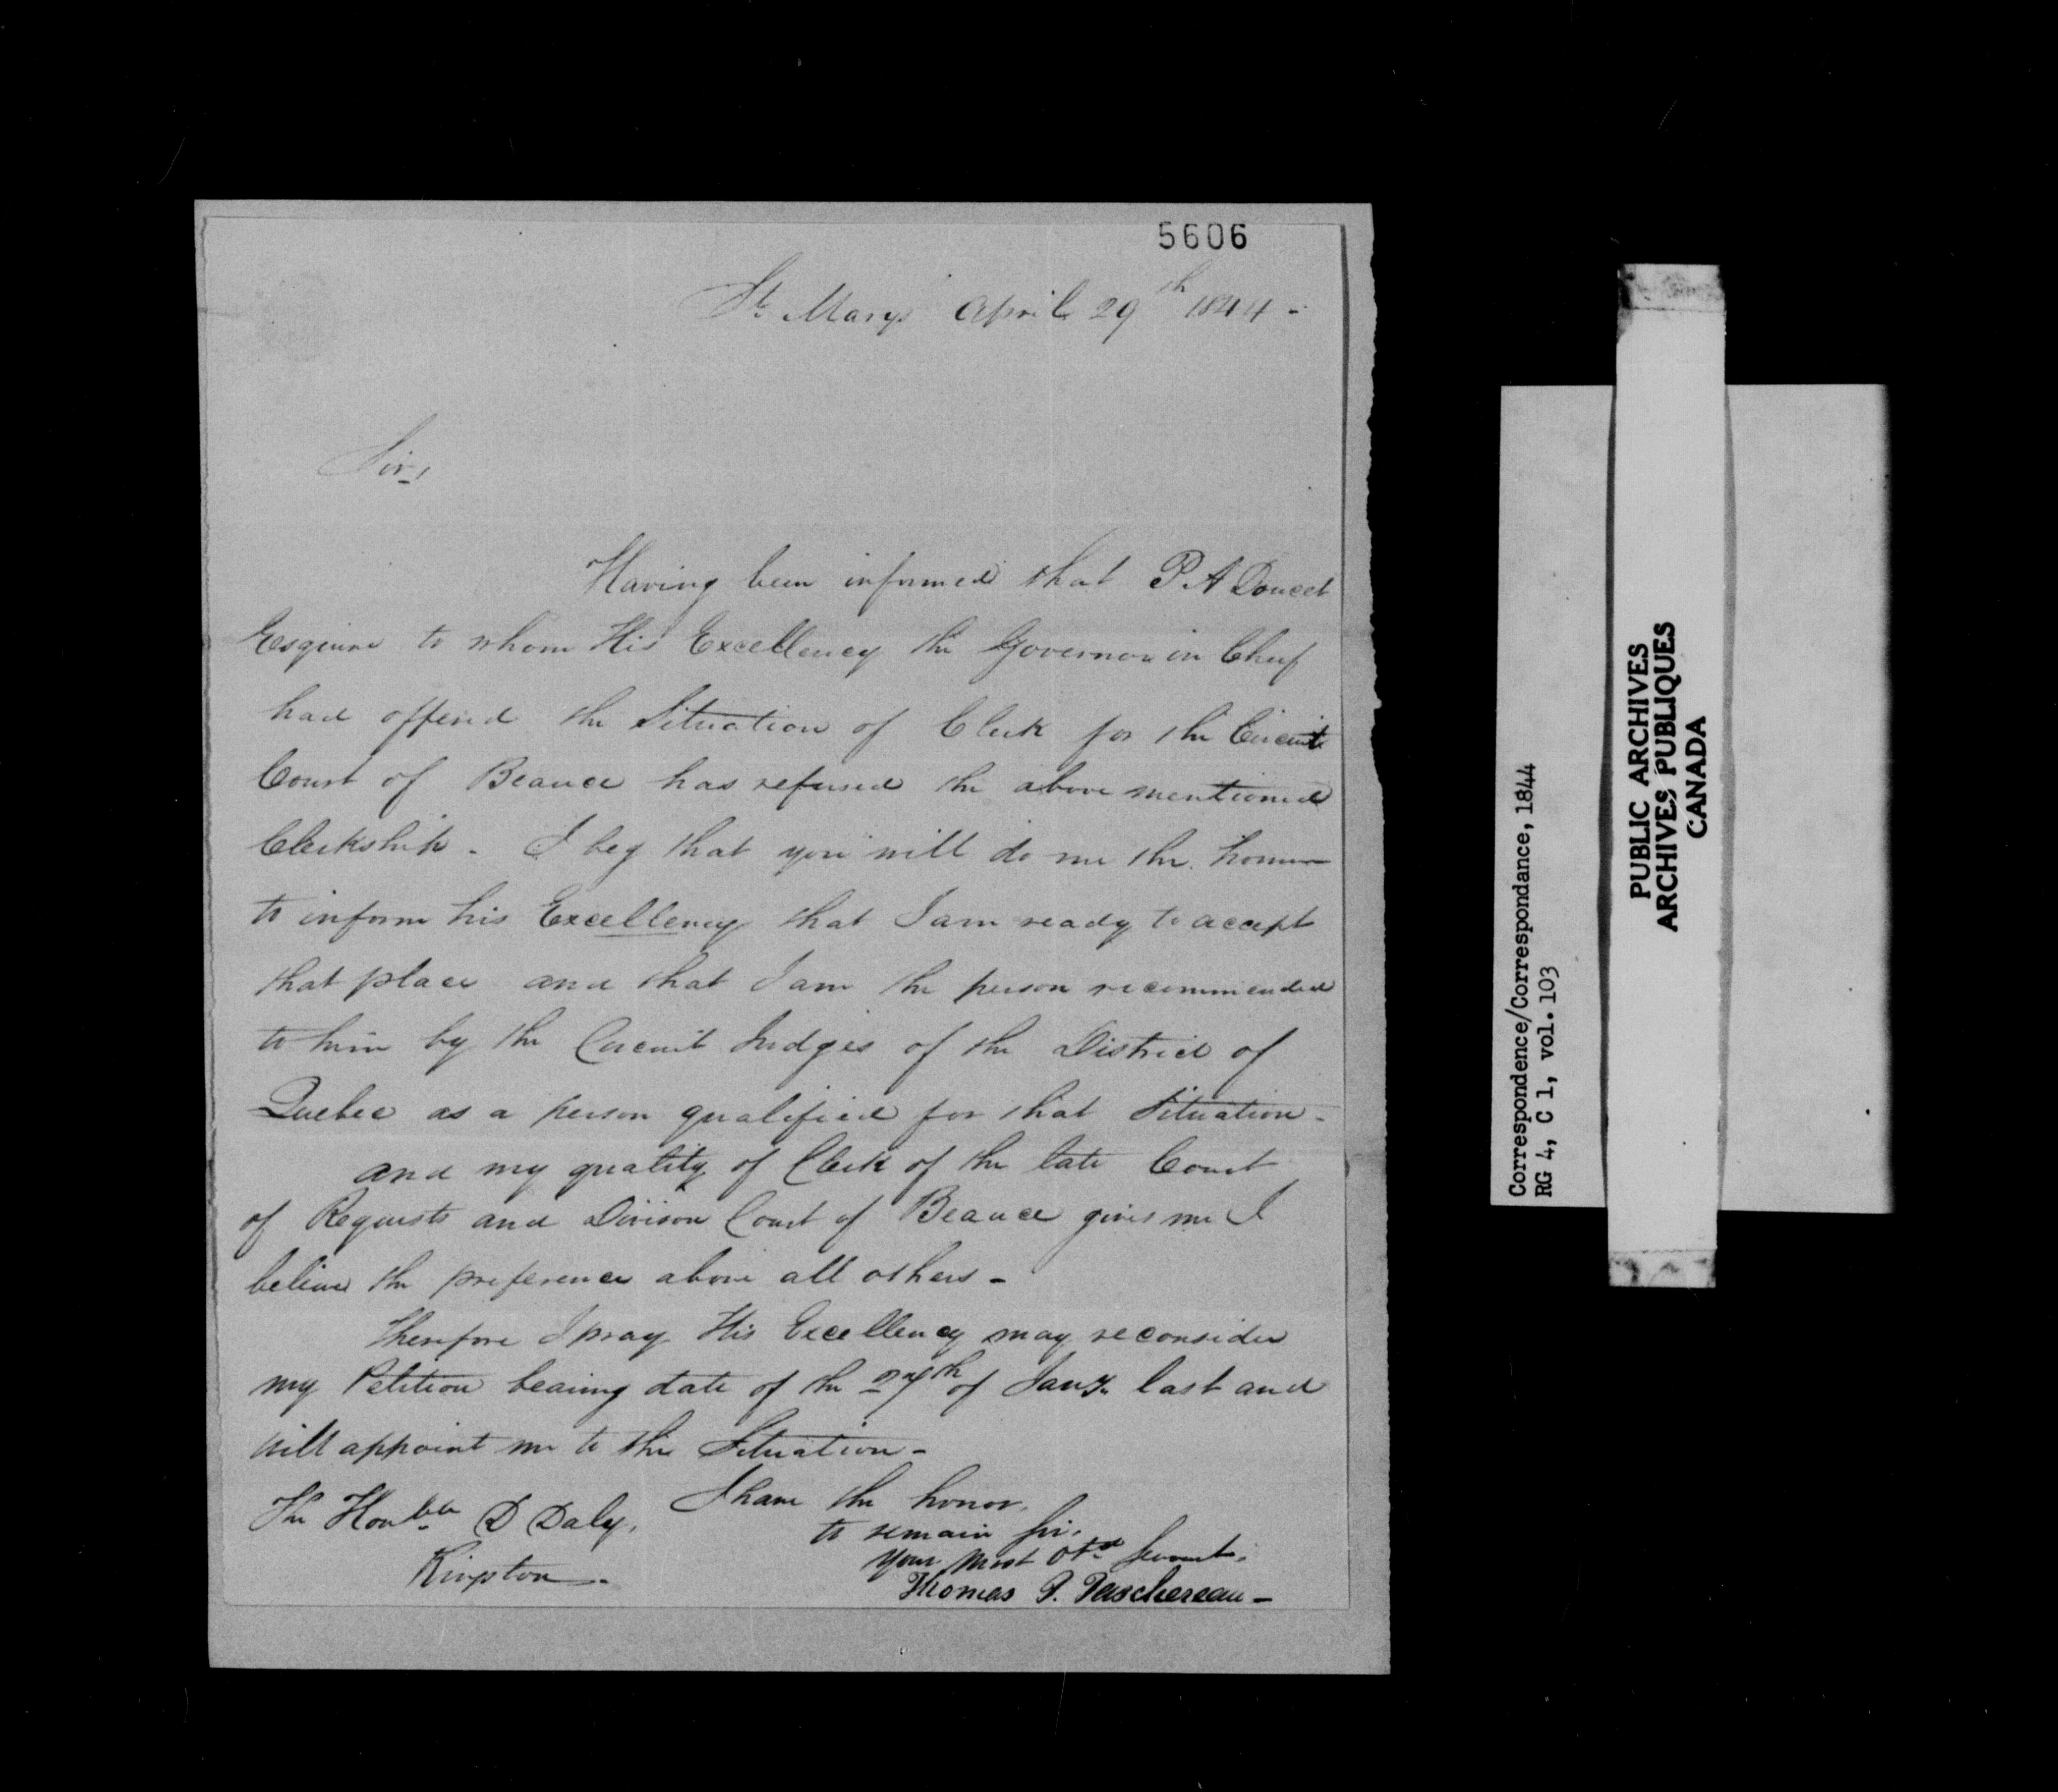 5606
St. Marys April 29th 1844 -
Sir,
Having been informed that P. A Doucet
Esquire to whom His Excellency the Governor in Chief
had offered the Situation of Clerk for the Circuit
Court of Beauce has refused the above mentioned
Clerkship. I beg that you will do me the honor
to inform his Excellency that I am ready to accept
that place and that I am the person recommended
to him by the Circuit Judges of the District of
Quebec as a person qualified for that Situation -
and my quality of Clerk of the late Court
of Requests and Division Court of Beauce gives me I
believe the preference above all others -
Therefore I pray His Excellency may reconsider
my Petition bearing date of the 27th of Jany. last and
will appoint me to the Situation -
I have the honor,
to remain Sir,
your most Obt. Servant,
Thomas P. Taschereau -
The Honble D Daly,
Kingston -
Correspondence/Correspondance, 1844
RG 4, C 1, vol. 103
PUBLIC ARCHIVES
ARCHIVES PUBLIQUES
CANADA